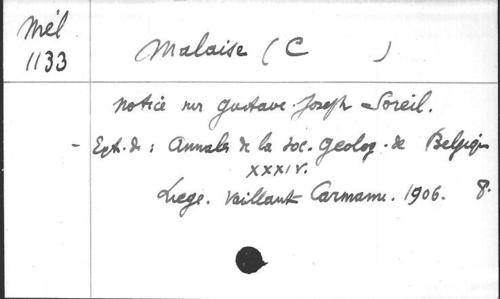 Mél
1133
Malaise (C )
notice sur Gustave-Joseph Soreil.
- Ext. de : Annales de la Soc. Geolog. de Belgique
XXXIV.
Liege. Vaillant Carmanne. 1906. 8°.